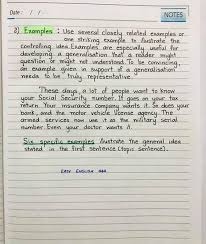 Date : / /
NOTES
3) Examples : Use several closely related examples or
one striking example to illustrate the
controlling idea. Examples are especially useful for
developing a generalisation that a reader might
question or might not understand. To be convincing,
an example given in support of a generalisation
needs to be truly representative.
These days, a lot of people want to know
your Social Security number. It goes on your tax
return. Your insurance company wants it. So does your
bank, and the motor vehicle license agency. The
armed services now use it as the military serial
number. Even your doctor wants it.
Six specific examples illustrate the general idea
stated in the first sentence (topic sentence).
EASY ENGLISH